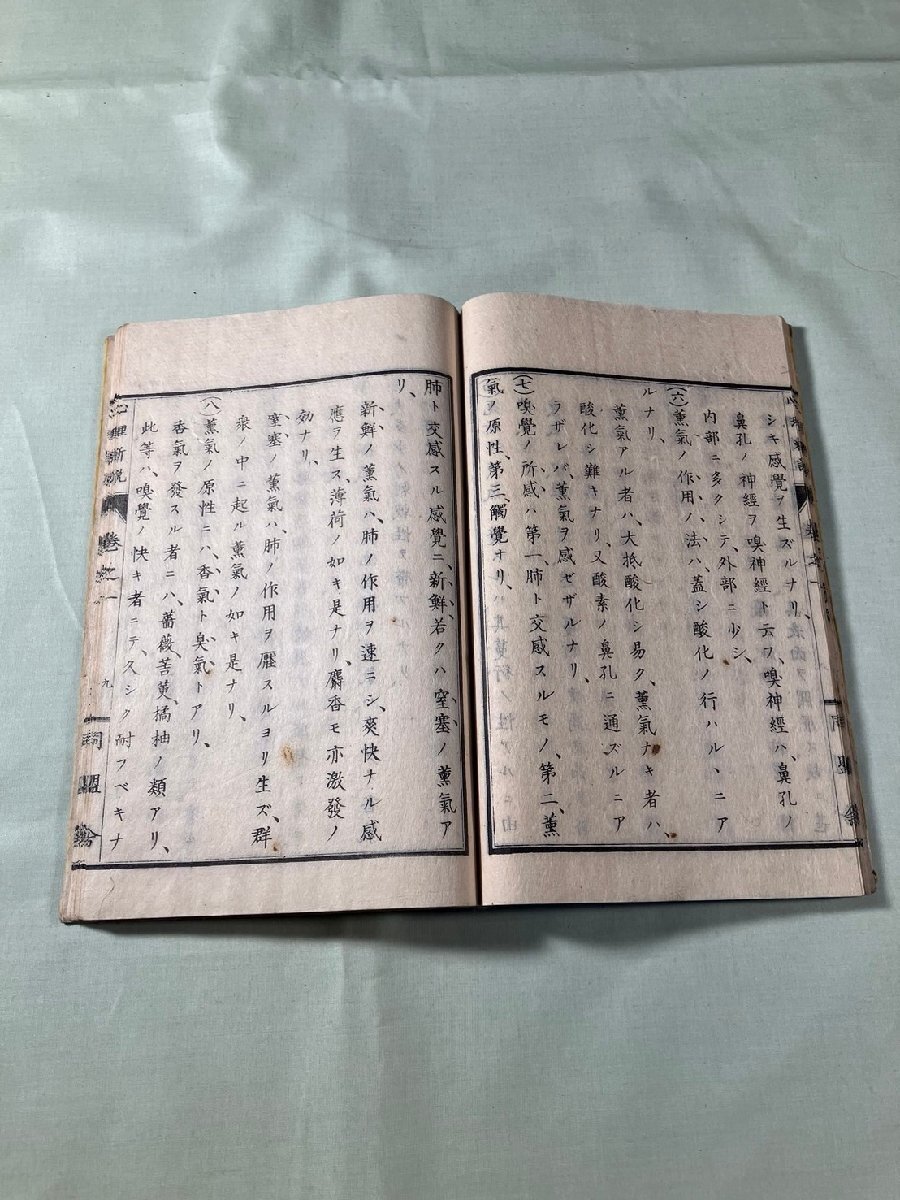 シキ感覺ヲ生ズルナリ、
鼻孔ノ神經ヲ嗅神經ト云フ、嗅神經ハ、鼻孔ノ
内部ニ多クシテ、外部ニ少シ、
(六)薫氣ノ作用ノ法ハ、蓋シ酸化ノ行ハルヽニア
ルナリ、
薫氣アル者ハ、大抵酸化シ易ク、薫氣ナキ者ハ、
酸化シ難キナリ、又酸素ノ鼻孔ニ通ズルニア
ラザレバ、薫氣ヲ感ゼザルナリ、
(七)嗅覺ノ所感ハ、第一肺ト交感スルモノ、第二、薫
氣ノ原性、第三、觸覺ナリ、
肺ト交感スル感覺ニ、新鮮若クハ窒塞ノ薫氣ア
リ、
新鮮ノ薫氣ハ、肺ノ作用ヲ速ニシ、爽快ナル感
應ヲ生ス、薄荷ノ如キ是ナリ、麝香モ亦激發ノ
効ナリ、
窒塞ノ薫氣ハ、肺ノ作用ヲ壓スルヨリ生ズ、群
衆ノ中ニ起ル薫氣ノ如キ是ナリ、
(八)薫氣ノ原性ニハ、香氣ト臭氣トアリ、
香氣ヲ發スル者ニハ、薔薇苦萸、橘柚ノ類アリ、
此等ハ、嗅覺ノ快キ者ニテ、久シク耐フベキナ
心理新説 卷之一 九 同盟舎